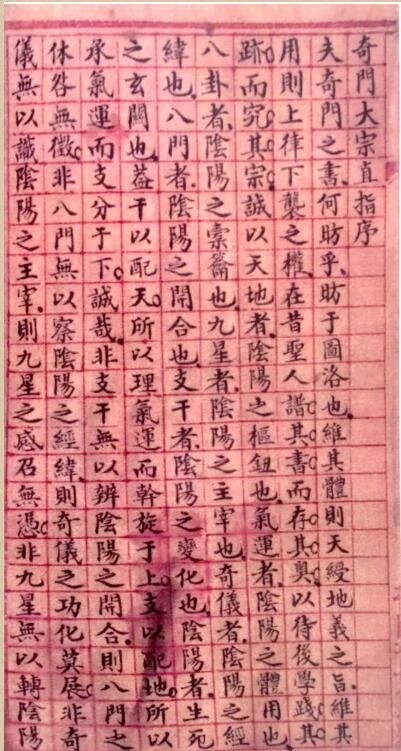 奇門大宗直指序
夫奇門之書。何昉乎。昉于圖洛也。維其體則天綬地義之旨。維其
用則上律下襲之權。在昔聖人譜其書而存其奧。以待後學踐其
跡。而究其宗。誠以天地者。陰陽之樞鈕也。氣運者。陰陽之體用也。
八卦者。陰陽之橐籥也。九星者。陰陽之主宰也。奇儀者。陰陽之經
緯也。八門者。陰陽之開合也。支干者。陰陽之變化也。陰陽者。生死
之玄關也。蓋干以配天。所以理氣運而幹旋于上。支以配地。所以
承氣運而支分于下。誠哉。非支干無以辨陰陽之開合。則八門之
休咎無徵。非八門無以察陰陽之經緯。則奇儀之功化莫展。非奇
儀無以識陰陽之主宰。則九星之感召無憑。非九星無以轉陰陽